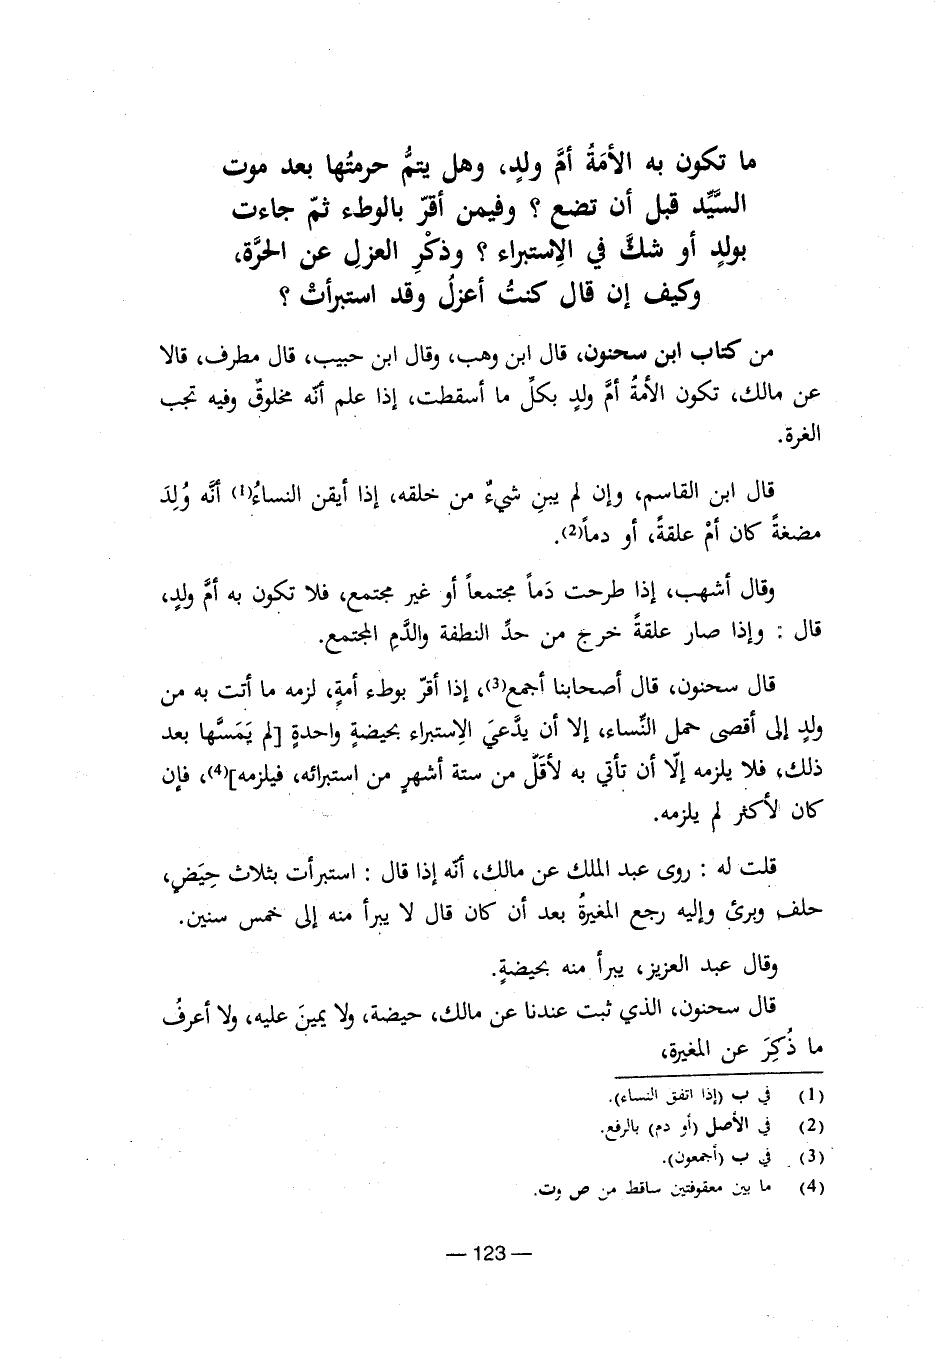 ما تكون به الأمَةُ أمَّ ولدٍ، وهل يتمُّ حرمتُها بعد موت
السَّيِّد قبل أن تضع ؟ وفيمن أقرّ بالوطء ثمّ جاءت
بولدٍ أو شكَّ في الإستبراء ؟ وذكْرِ العزلِ عن الحرَّة،
وكيف إن قال كنتُ أعزلُ وقد استبرأتْ ؟
من كتاب ابن سحنون، قال ابن وهب، وقال ابن حبيب، قال مطرف، قالا
عن مالك، تكون الأمةُ أمَّ ولدٍ بكلِّ ما أسقطت، إذا علم أنّه مخلوقٌ وفيه تجب
الغرة.
قال ابن القاسم، وإن لم يبنِ شيءٌ من خلقه، إذا أيقن النساءُ(1) أنَّه وُلِدَ
مضغةً كان أمْ علقةً، أو دماً(2).
وقال أشهب، إذا طرحت دَماً مجتمعاً أو غير مجتمع، فلا تكون به أمَّ ولدٍ،
قال : وإذا صار علقةً خرج من حدِّ النطفة والدَّمِ المجتمع.
قال سحنون، قال أصحابنا أجمع(3)، إذا أقرّ بوطء أمةٍ، لزمه ما أتت به من
ولدٍ إلى أقصى حمل النِّساء، إلا أن يدَّعيَ الإستبراء بحيضةٍ واحدةٍ [لم يَمَسَّها بعد
ذلك، فلا يلزمه إلّا أن تأتي به لأقَلّ من ستة أشهرٍ من استبرائه، فيلزمه](4)، فإن
كان لأكثر لم يلزمه.
قلت له : روى عبد الملك عن مالك، أنّه إذا قال : استبرأت بثلاث حِيَضٍ،
حلف وبرئ وإليه رجع المغيرةُ بعد أن كان قال لا يبرأ منه إلى خمس سنين.
وقال عبد العزيز، يبرأ منه بحيضةٍ.
قال سحنون، الذي ثبت عندنا عن مالك، حيضة، ولا يمينَ عليه، ولا أعرفُ
ما ذُكِرَ عن المغيرة،
(1) في ب (إذا اتفق النساء).
(2) في الأصل (أو دم) بالرفع.
(3) في ب (أجمعون).
(4) ما بين معقوفتين ساقط من ص وت.
— 123 —